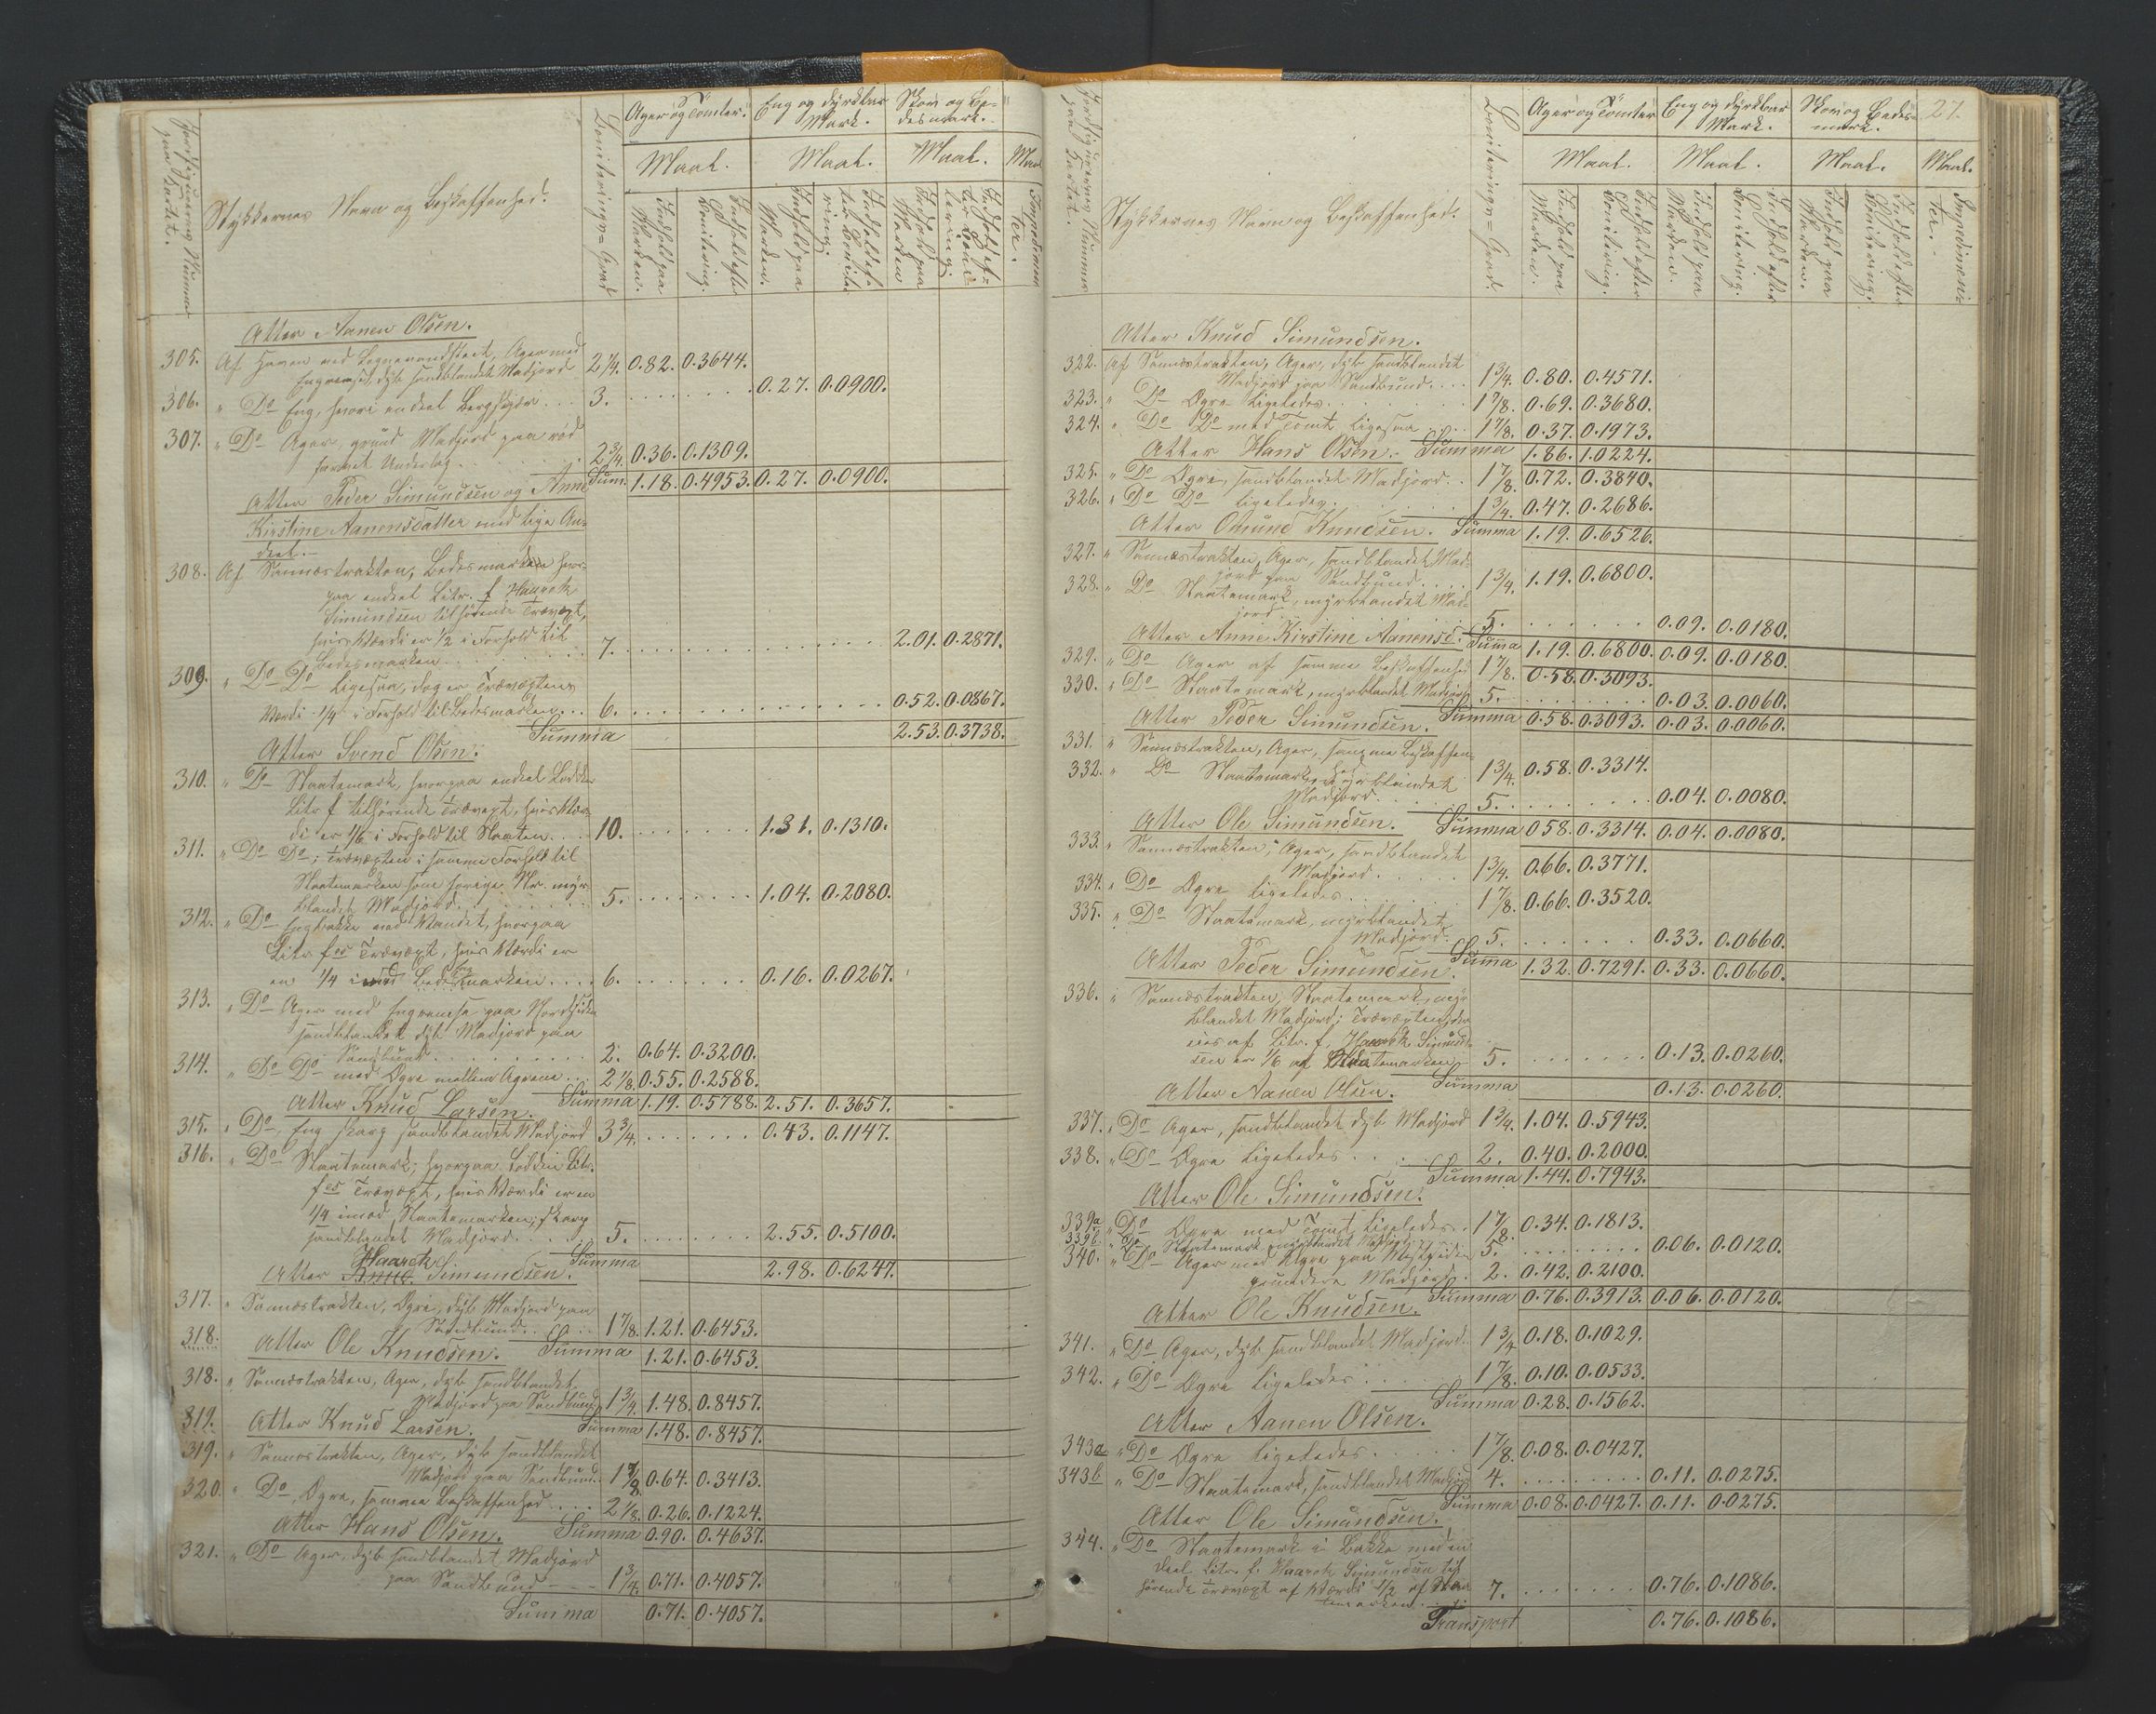 Stykkernes Navn og Beskaffenhed.
Boniterings=Grad
Ager og Tomter. Eng og dyrkbar Mark. Skov og Be-
desmark.
Maal. Maal. Maal. Maal
Indhold paa Marken. Indhold efter Bonitering. Indhold paa Marken. Indhold paa Marken
Atter Aanen Olsen.
305. Af Haven ved Ager med
dyb sandblandet Madjord 2 1/4. 0.82. 0.3644.
306. " Do Eng, hvori endeel 3. 0.27. 0.0900.
307. " Do Ager, grund Madjord paa rød
farvet Underlag. 2 3/4. 0.36. 0.1309.
Sum. 1.18. 0.4953. 0.27. 0.0900.
Atter Peder Simundsen og Anne
Kirstine Aanensdatter med lige An-
deel.
308. Af Sannestrakten, Bedesmarken hvor-
paa endeel Litr. f Haarek
Simundsen tilhørende Trævext,
hvis Værdi er 1/2 i Forhold til
Bedesmarken 7. 2.01. 0.2871.
309. " Do Do ligesaa, dog er Trævextens
Værdi 1/4 i Forhold til Bedesmarken 6. 0.52. 0.0867.
Summa 2.53. 0.3738.
Atter Svend Olsen:
310. " Do Slaatemark, hvorpaa endeel Lodden
Litr f tilhørende Trævext, hvis Vær-
di er 1/6 i Forhold til Slaaten 10. 1.31. 0.1310.
311. " Do Do; Trævexten i samme Forhold til
Slaatemarken som forrige Nr. myr-
blandet Madjord 5. 1.04. 0.2080.
312. " Do Engbakke ved Vandet, hvorpaa
Litr fes Trævext, hvis Værdi er
en 1/4 imod 6. 0.16. 0.0267.
313. " Do Ager med paa Nordsiden
sandblandet dyb Madjord paa
Sandbund 2. 0.64. 0.3200.
314. " Do Do med Agre mellem Agrene 2 1/8. 0.55. 0.2588.
Summa 1.19. 0.5788. 2.51. 0.3657.
Atter Knud Larsen.
315. " Do Eng skarp sandblandet Madjord 3 3/4. 0.43. 0.1147.
316. " Do Slaatemark, hvorpaa Lodden Litr.
fes Trævext, hvis Værdi er en
1/4 imod Slaatemarken, skarp
sandblandet Madjord 5. 2.55. 0.5100.
Summa 2.98. 0.6247.
Haarek
Atter Knud Simundsen.
317. " Sannestrakten, Agre, dyb Madjord paa
Sandbund 1 7/8. 1.21. 0.6453.
318. Atter Ole Knudsen. Summa 1.21. 0.6453.
318. " Sannestrakten, Ager, dyb sandblandet
Madjord paa Sandbund 1 3/4. 1.48. 0.8457.
319. Atter Knud Larsen. Summa 1.48. 0.8457.
319. " Sannestrakten, Ager, dyb sandblandet
Madjord paa Sandbund. 1 7/8 0.64. 0.3413.
320. " Do Agre, samme Beskaffenhed 2 1/8. 0.26. 0.1224.
Atter Hans Olsen. Summa 0.90. 0.4637.
321. " Do Ager, dyb sandblandet Madjord
paa Sandbund 1 3/4. 0.71. 0.4057.
Summa 0.71. 0.4057.
27.
Stykkernes Navn og Beskaffenhed.
Boniterings=Grad.
Ager og Tomter Eng og dyrkbar Mark. Skov og Bedes-
mark.
Maal. Maal. Maal. Maal.
Indhold paa Marken. Indhold efter Bonitering. Indhold paa Marken. Indhold efter Bonitering. Indhold paa Marken. Indhold efter Bonitering. Impedimen-
ter.
Atter Knud Simundsen.
322. Af Sannestrakten, Ager, dyb sandblandet
Madjord paa Sandbund 1 3/4. 0.80. 0.4571.
323. " Do Agre ligeledes 1 7/8. 0.69. 0.3680.
324. " Do Do med Tomt ligesaa 1 7/8. 0.37. 0.1973.
Atter Hans Olsen. Summa 1.86. 1.0224.
325. " Do Agre, sandblandet Madjord 1 7/8. 0.72. 0.3840.
326. " Do Do ligeledes 1 3/4. 0.47. 0.2686.
Atter Omund Knudsen. Summa 1.19. 0.6526.
327. " Sannestrakten, Ager, sandblandet Mad-
jord paa Sandbund 1 3/4. 1.19. 0.6800.
328. " Do Slaatemark, myrblandet Mad-
jord 5. 0.09. 0.0180.
Atter Anne Kirstine Aanensd. Summa 1.19. 0.6800. 0.09. 0.0180.
329. " Do Ager af samme Beskaffenhed 1 7/8. 0.58. 0.3093.
330. " Do Slaatemark, myrblandet Madjord 5. 0.03. 0.0060.
Atter Peder Simundsen. Summa 0.58. 0.3093. 0.03. 0.0060.
331. " Sannestrakten, Ager, samme Beskaffen-
hed 1 3/4. 0.58. 0.3314.
332. " Do Slaatemark, myrblandet
Madjord 5. 0.04. 0.0080.
Atter Ole Simundsen. Summa 0.58. 0.3314. 0.04. 0.0080.
333. " Sannestrakten, Ager, sandblandet
Madjord 1 3/4. 0.66. 0.3771.
334. " Do Agre ligeledes 1 7/8. 0.66. 0.3520.
335. " Do Slaatemark, myrblandet
Madjord 5. 0.33. 0.0660.
Atter Peder Simundsen. Summa 1.32. 0.7291. 0.33. 0.0660.
336. " Sannestrakten, Slaatemark, myr-
blandet Madjord; Trævexten
af Litr. f, Haarek Simund-
sen er 1/6 af Slaatemarken 5. 0.13. 0.0260.
Atter Aanen Olsen. Summa 0.13. 0.0260.
337. " Do Ager, sandblandet dyb Madjord 1 3/4. 1.04. 0.5943.
338. " Do Agre ligeledes 2. 0.40. 0.2000.
Summa 1.44. 0.7943.
Atter Ole Simundsen.
339a " Do Agre med Tomt, ligeledes 1 7/8. 0.34. 0.1813.
339b. " Do Slaatemark myrblandet Madjord 5. 0.06. 0.0120.
340. " Do Ager med Agre paa Vestsiden
grundere Madjord 2. 0.42. 0.2100.
Summa 0.76. 0.3913. 0.06. 0.0120.
Atter Ole Knudsen.
341. " Do Ager, dyb sandblandet Madjord 1 3/4 0.18. 0.1029.
342. " Do Agre ligeledes 1 7/8. 0.10. 0.0533.
Summa 0.28. 0.1562.
Atter Aanen Olsen.
343a " Do Agre ligeledes 1 7/8. 0.08. 0.0427.
343b " Do Slaatemark, sandblandet Madjord 4. 0.11. 0.0275.
Summa 0.08. 0.0427. 0.11. 0.0275.
Atter Ole Simundsen.
344. " Do Slaatemark i Bakke med en
Deel Litr. f. Haarek Simundsen til-
hørende Trævext af Værdi 1/2 af Slaa-
temarken 7. 0.76. 0.1086.
Transport 0.76. 0.1086.